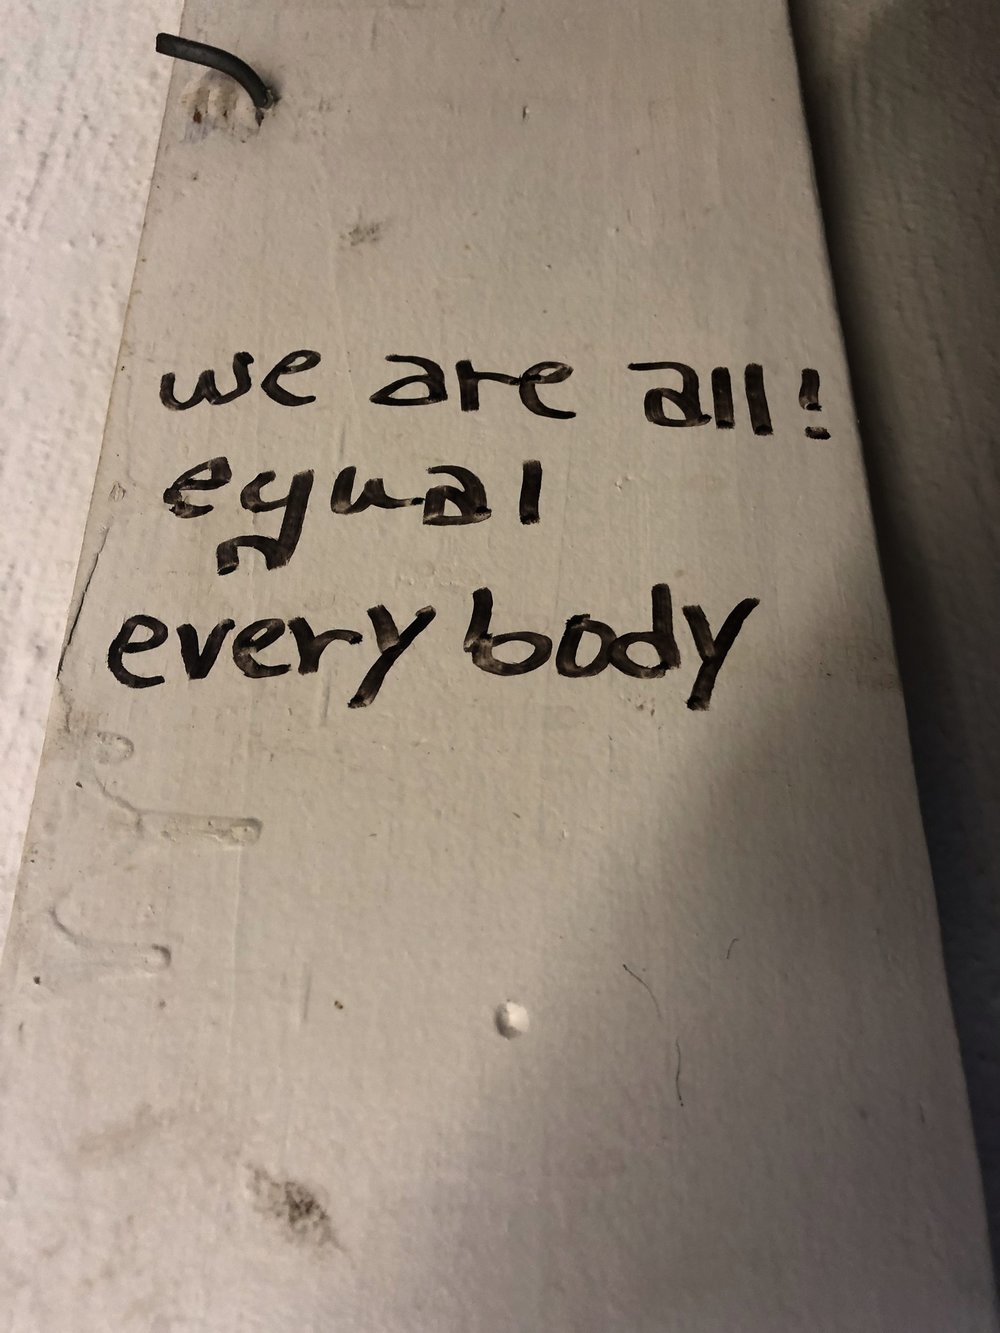 we are all!
equal
every body